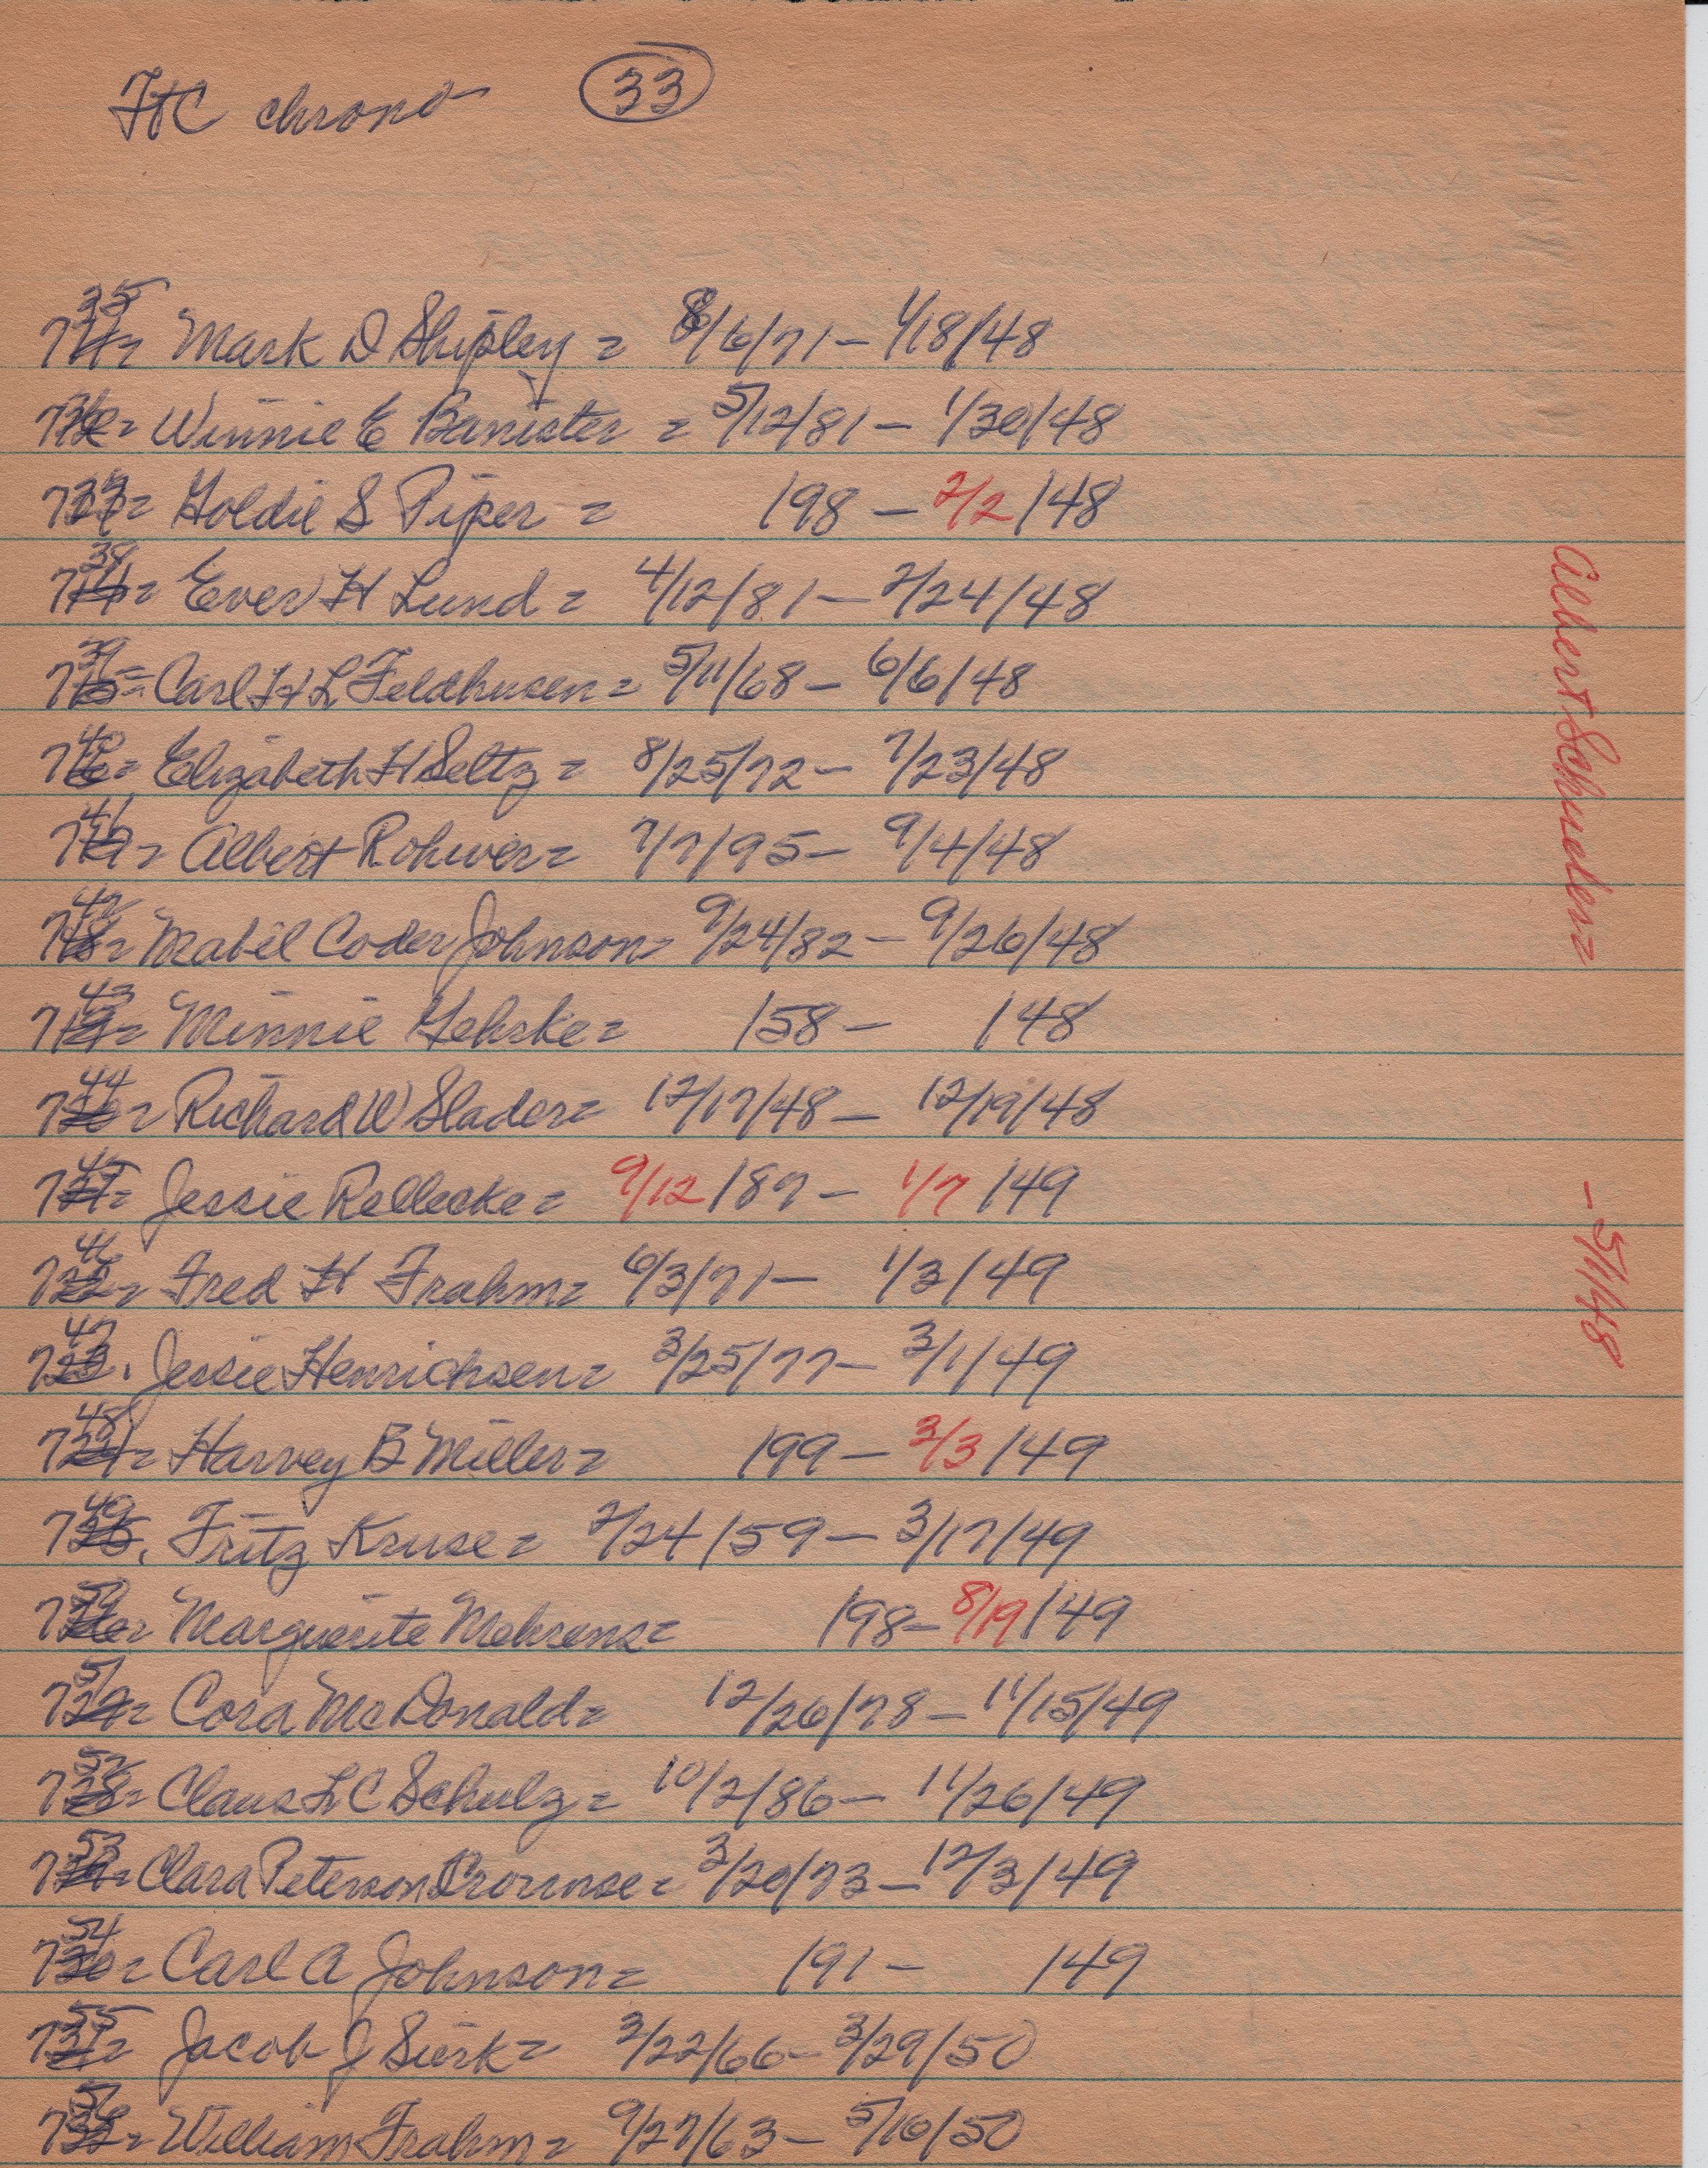 FtC chrono 33
735= Mark D Shipley = 8/6/71 - 1/18/48
736= Winnie E Banister = 5/12/81 - 1/30/48
737= Goldie S Piper = /98 - 2/2/48
738= Ever H Lund = 4/12/81 - 2/24/48
739= Carl H L Feldhusen = 5/11/68 - 6/6/48
740= Elizabeth H Seltz = 8/25/72 - 7/23/48
741= Albert Rohwer = 7/7/95 - 9/4/48
742= Mabel Coder Johnson = 9/24/82 - 9/26/48
743= Minnie Gehrke = /58 - /48
744= Richard W Slader = 12/17/48 - 12/19/48
745= Jessie Rellecke = 9/12/87 - 1/7/49
746= Fred H Frahm = 6/3/71 - 1/3/49
747. Jessie Henrichsen = 3/25/77 - 3/1/49
748= Harvey B Miller = /99 - 3/3/49
749. Fritz Kruse = 2/24/59 - 3/17/49
750= Marguerite Mehrens = /98 - 8/19/49
751= Cora McDonald = 12/26/78 - 11/15/49
752= Claus L C Schulz = 10/2/86 - 11/26/49
753= Clara Peterson = 3/20/73 - 12/3/49
754= Carl A Johnson = /91 - /49
755= Jacob J Sierk = 3/22/66 - 3/29/50
756= William Frahm = 9/27/63 - 5/10/50
Albert Schueler = - 5/1/48